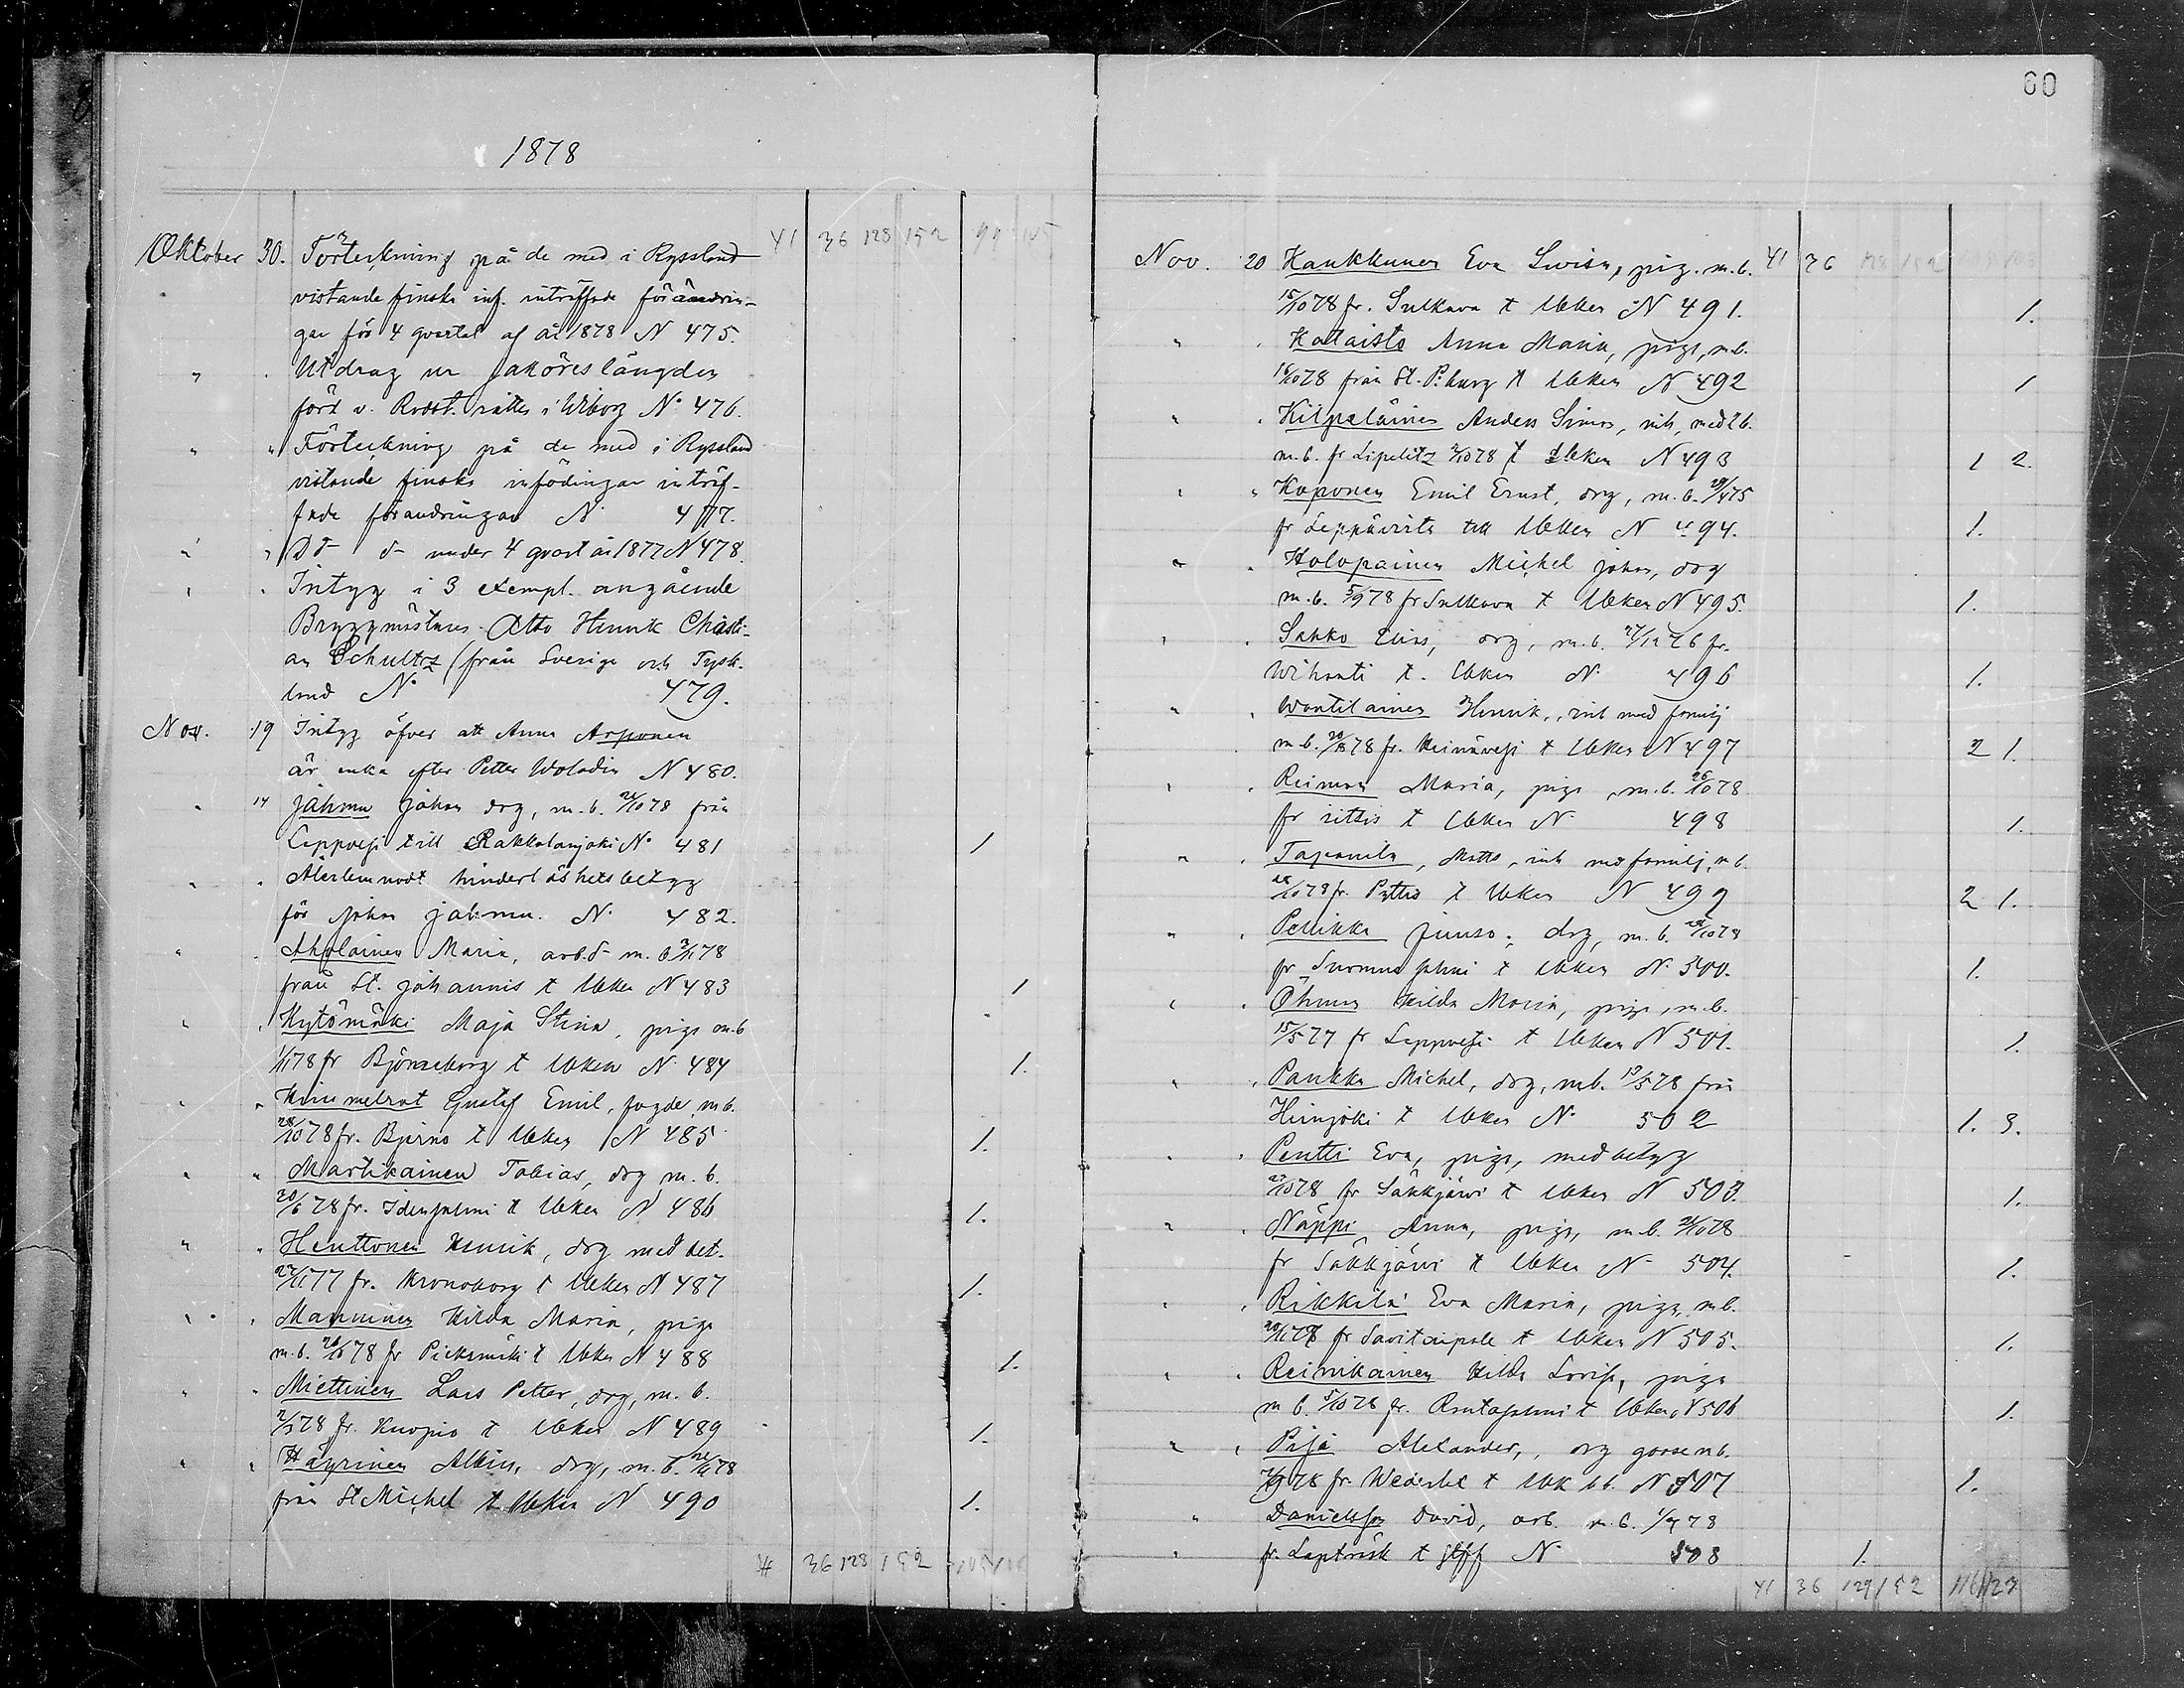 60
1878
41 36 128 152 99 105
Oktober 30. Förteckning på de med i Ryssland
vistande finska inf. inträffade förändrin-
gar för 4 qvartal af år 1878 N 475.
" " Utdrag ur saköreslängden
förd v. Rådst. rätten i Wiborg No 476.
" " Förteckning på de med i Ryssland
vistande finska infödingar inträf-
fade förändringar N. 477.
" " D:o d:o under 4 qvart år 1877 N 478.
" " Intyg i 3 exempl. angående
Bryggmästares Otto Henrik Christi-
an Schultz (från Sverige och Tysk-
land No 479.
Nov. 19 Intyg öfver att Anna Arponen
är enka efter Petter Wolodin N 480.
" 14 Jähmu Johan drg, m. b. /10 78 från
Leppvesi till Rakkolanjoki No 481 1
" " hinderlöshetsbetyg
för Johan Jähmu. N. 482.
" " Aholainen Maria, arb. m. b. 78
från St. Johannis t Ubken N 483 1
" " Kytömäki Maja Stina, piga m. b
1/11 78 fr Björneborg t Ubken N. 484 1.
" " Himmelrot Gustaf Emil, fogde, m b.
28/10 78 fr. Bjerno t Ubken N 485 1.
" " Martikainen Tobias, drg m. b.
20/6 78 fr. Idensalmi t Ubken N 486 1.
" " Henttonen Henrik, drg med bet.
77 fr. Kronoborg t Ubken N 487 1.
" " Manninen Hilda Maria, piga
m. b. 78 fr Pieksmäki t Ubken N 488 1.
" " Miettinen Lars Petter, drg, m. b.
78 fr. Kuopio t Ubken N 489 1.
" " Häyrinen Albin, drg, m. b. 78
från St Michel t Ubken N 490 1.
41 36 128 152
Nov. 20 Kaukkunen Eva Lovisa, pig. m. b. 41 36
15/10 78 fr. Sulkava t Ubken N 491. 1.
" " Kataisto Anna Maria, piga, m b.
16/10 78 från St. P:burg t Ubken N 492 1
" " Kilpeläinen Anders Simon, inh, med
m. b. fr Lipelitz 78 t Ubken N 493 1 2.
" " Koponen Emil Ernst, drg, m. b. 29/4 75
fr Leppävirta till Ubken N 494. 1.
" " Holopainen Michel Johan, drg
m. b. 5/9 78 fr Sulkava t Ubken N 495. 1.
" " Sakko Elias, drg, m. b. 76 fr.
Wihanti t. Ubken N. 496 1.
" " Wantilainen Henrik, inh med familj
m. b. 78 fr. Heinävesi t Ubken N 497 2 1.
" " Reiman Maria, piga, m. b. 26/10 78
fr t Ubken N 498 1.
" " Tapanila, Matts, inh med familj, m b.
/10 78 fr. Pyttis t Ubken N 499 2 1.
" " Pellikka Juuso, drg, m. b. /10 78
fr Suomussalmi t Ubken N. 500. 1.
" " Öhman Hilda Maria, piga, m. b.
15/5 77 fr Leppvesi t Ubken N 501. 1.
" " Paukku Michel, drg, m b. 13/5 78 från
Heinjoki t Ubken No 502 1. 3.
" " Pentti Eva, piga, med betyg
/10 78 fr Säkkjärvi t Ubken N 503. 1.
" " Näppi Anna, piga, m. b. /10 78
fr Säkkjärvi t Ubken N 504. 1.
" " Rikkilä Eva Maria, piga, m b.
78 fr Savitaipale t Ubken N 505. 1.
" " Reinikainen Hilda Lovisa, piga
m b. 5/10 78 fr. Rautasalmi t Ubken, N 506 1.
" " Alexander, drg gosse m b.
78 fr Wederlax t Ubk N 507 1.
" Danielsson David, arb. m. b. 78
" fr. Lapträsk t N 508 1.
41 36 129 152 116 123